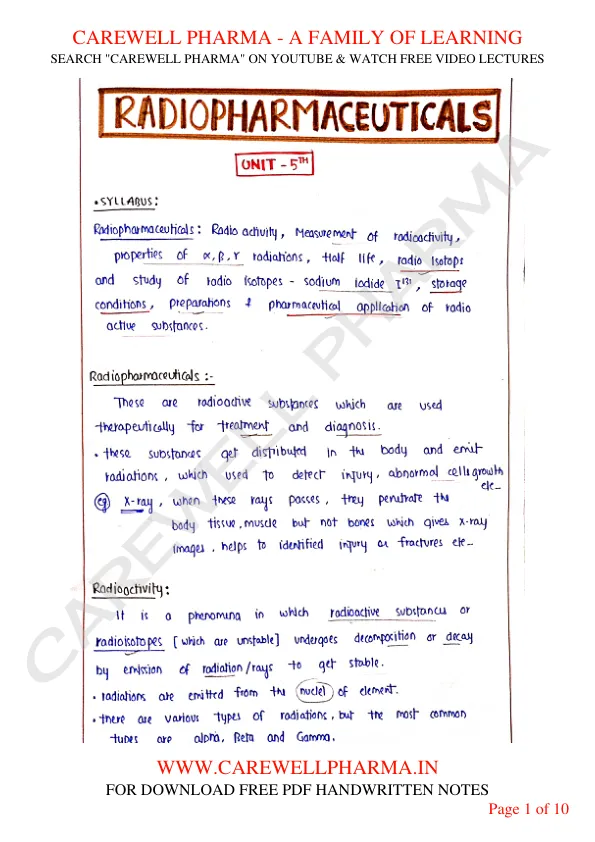 CAREWELL PHARMA - A FAMILY OF LEARNING
SEARCH "CAREWELL PHARMA" ON YOUTUBE & WATCH FREE VIDEO LECTURES
RADIOPHARMACEUTICALS
UNIT - 5TH
• SYLLABUS:
Radiopharmaceuticals: Radio activity, Measurement of radioactivity,
properties of α, β, γ radiations, Half life, radio Isotops
and study of radio isotopes - sodium Iodide I131, storage
conditions, preparations & pharmaceutical application of radio
active substances.
Radiopharmaceuticals :-
These are radioactive substances which are used
therapeutically for treatment and diagnosis.
• these substances get distributed in the body and emit
radiations, which used to detect injury, abnormal cells growth
etc-
eg X-ray, when these rays passes, they penitrate the
body tissue, muscle but not bones which gives x-ray
images, helps to identified injury or fractures etc-
Radioactivity:
It is a phenomina in which radioactive substances or
radioisotopes [which are unstable] undergoes decomposition or decay
by emission of radiation/rays to get stable.
• radiations are emitted from the nuclei of element.
• there are various types of radiations, but the most common
types are alpha, Beta and Gamma.
CAREWELL PHARMA
WWW.CAREWELLPHARMA.IN
FOR DOWNLOAD FREE PDF HANDWRITTEN NOTES
Page 1 of 10